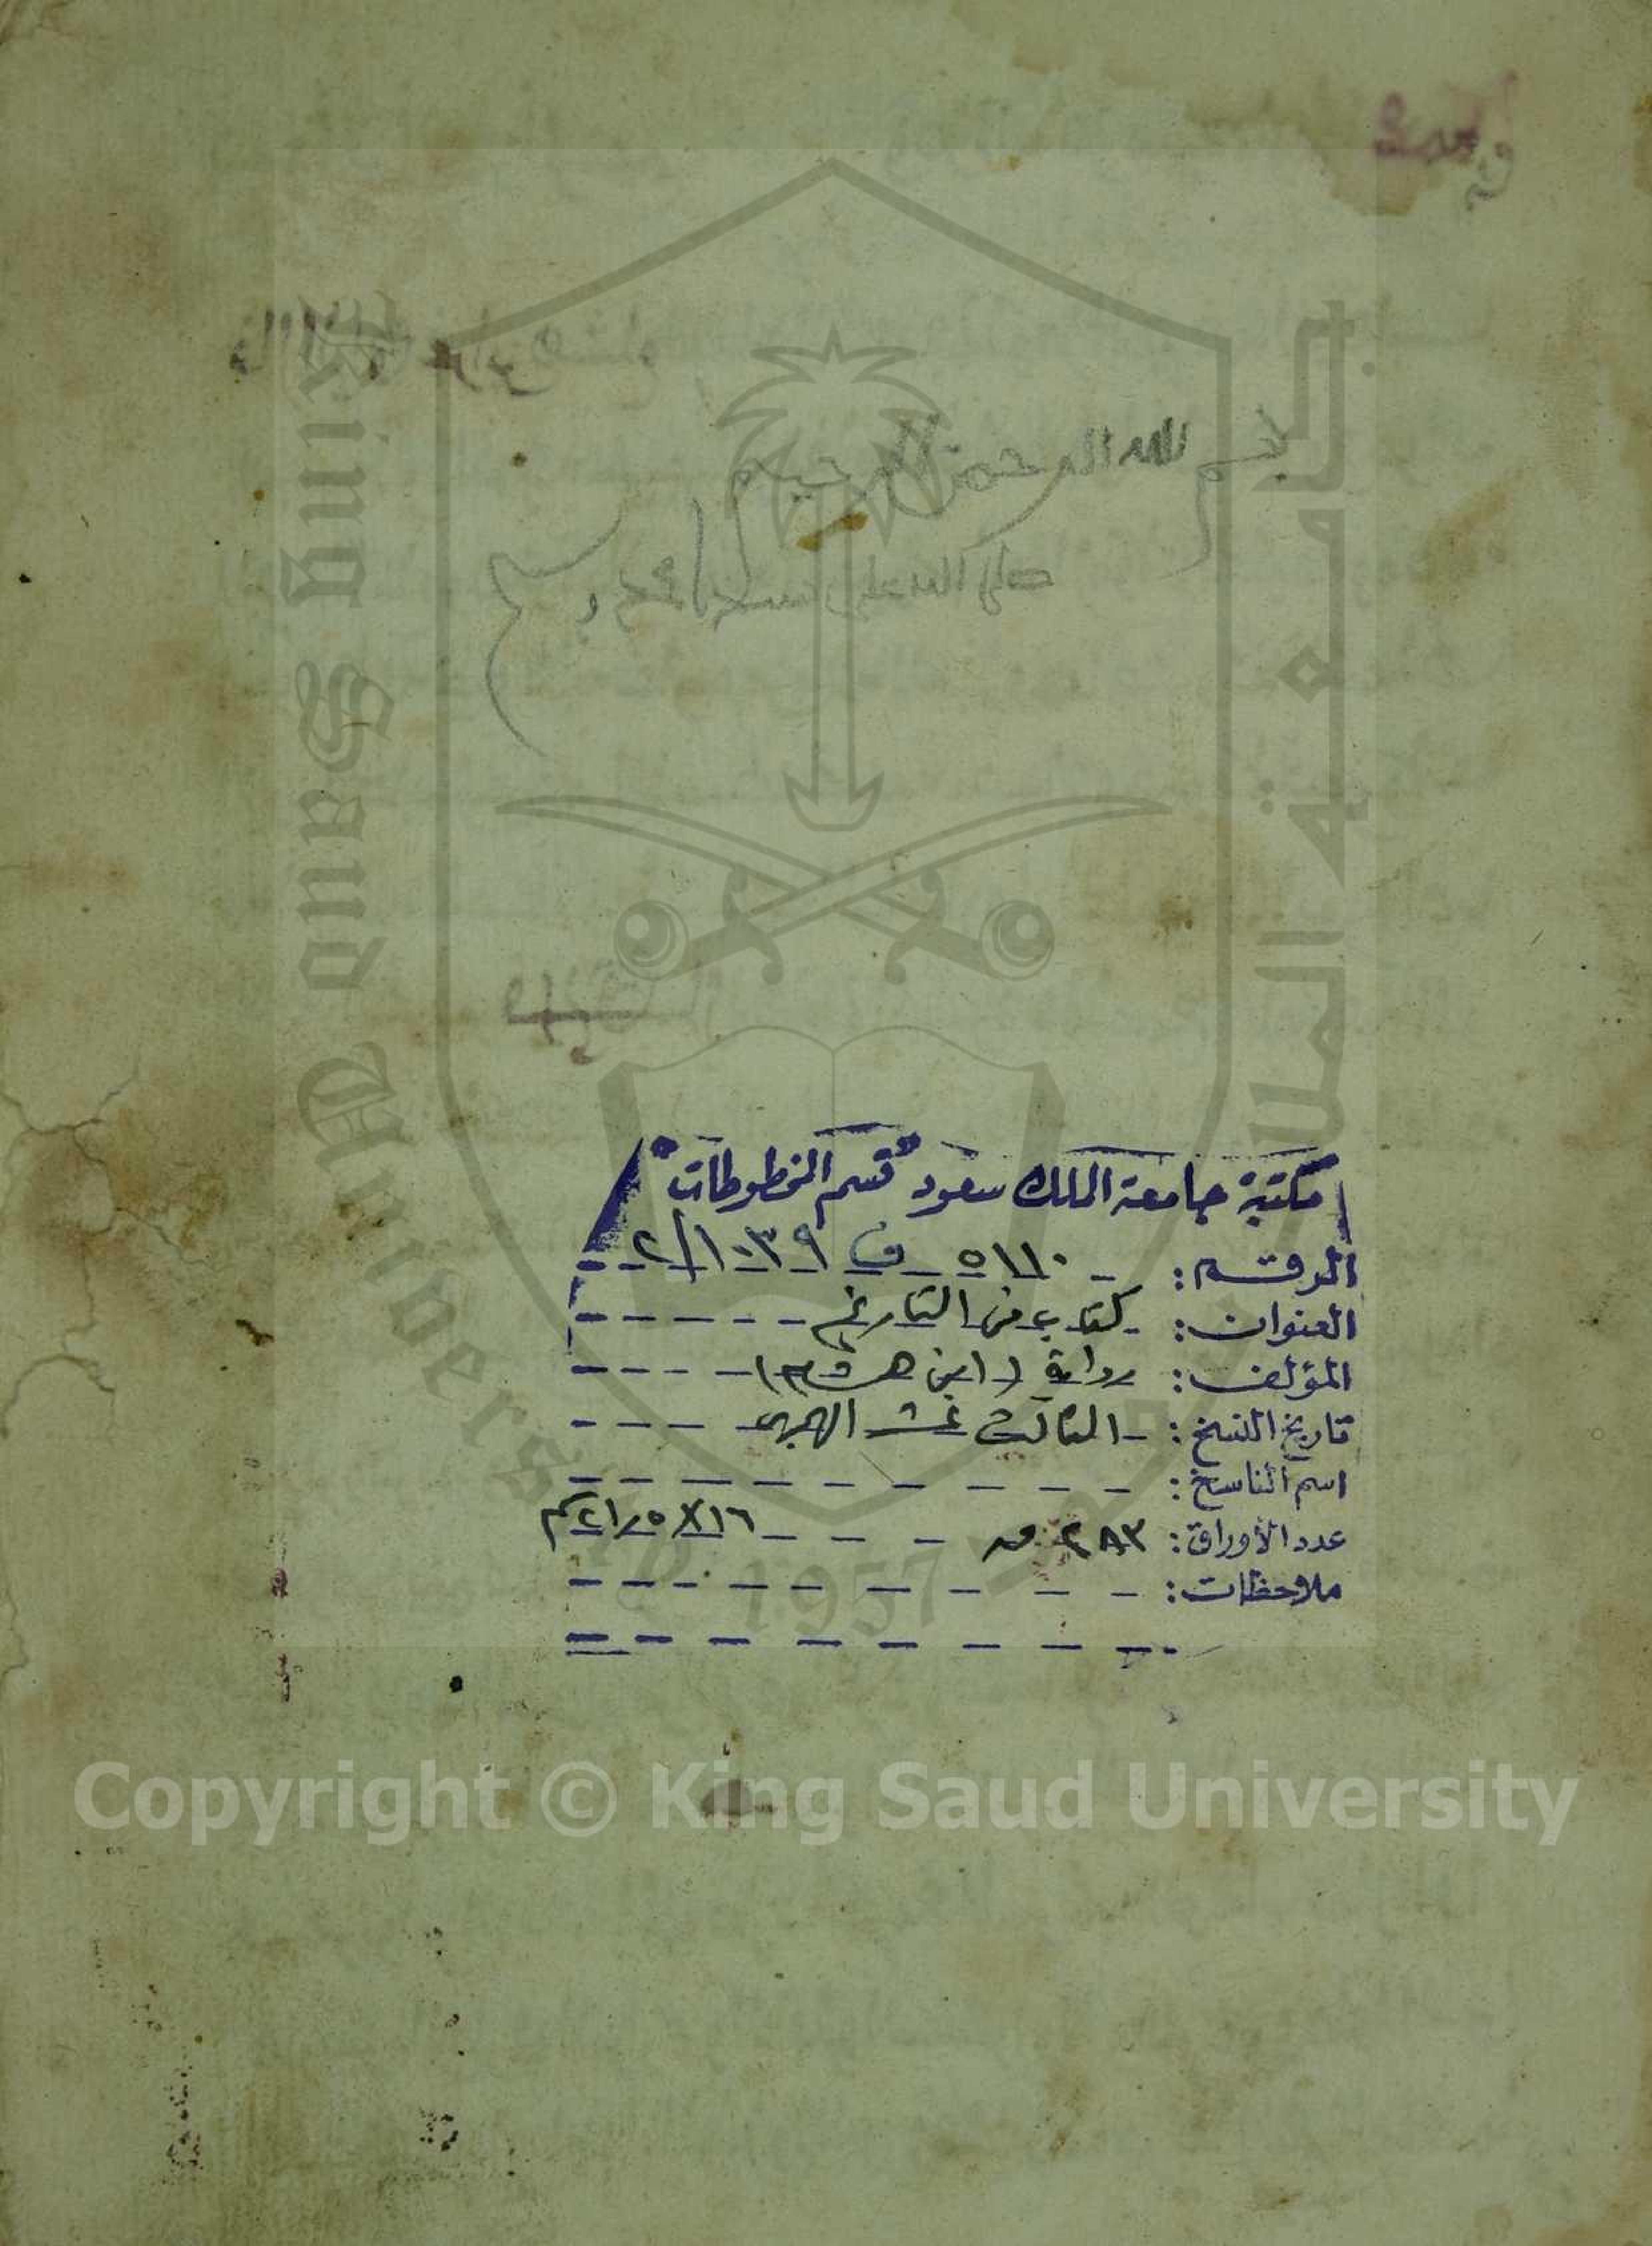 بسم الله الرحمن الرحيم
صلى الله على سيدنا محمد
مكتبة جامعة الملك سعود "قسم المخطوطات"
الرقم: ٥١١٠ ف ٢/١٠٣٩
العنوان: كتاب في التاريخ
المؤلف: رواية (ابن هشام)
تاريخ النسخ: الثالث عشر الهجري
اسم الناسخ:
عدد الأوراق: ٢٨٣ ص ١٦×٢١٫٥ سم
ملاحظات:
King Saud University
جامعة الملك سعود
1957
Copyright © King Saud University